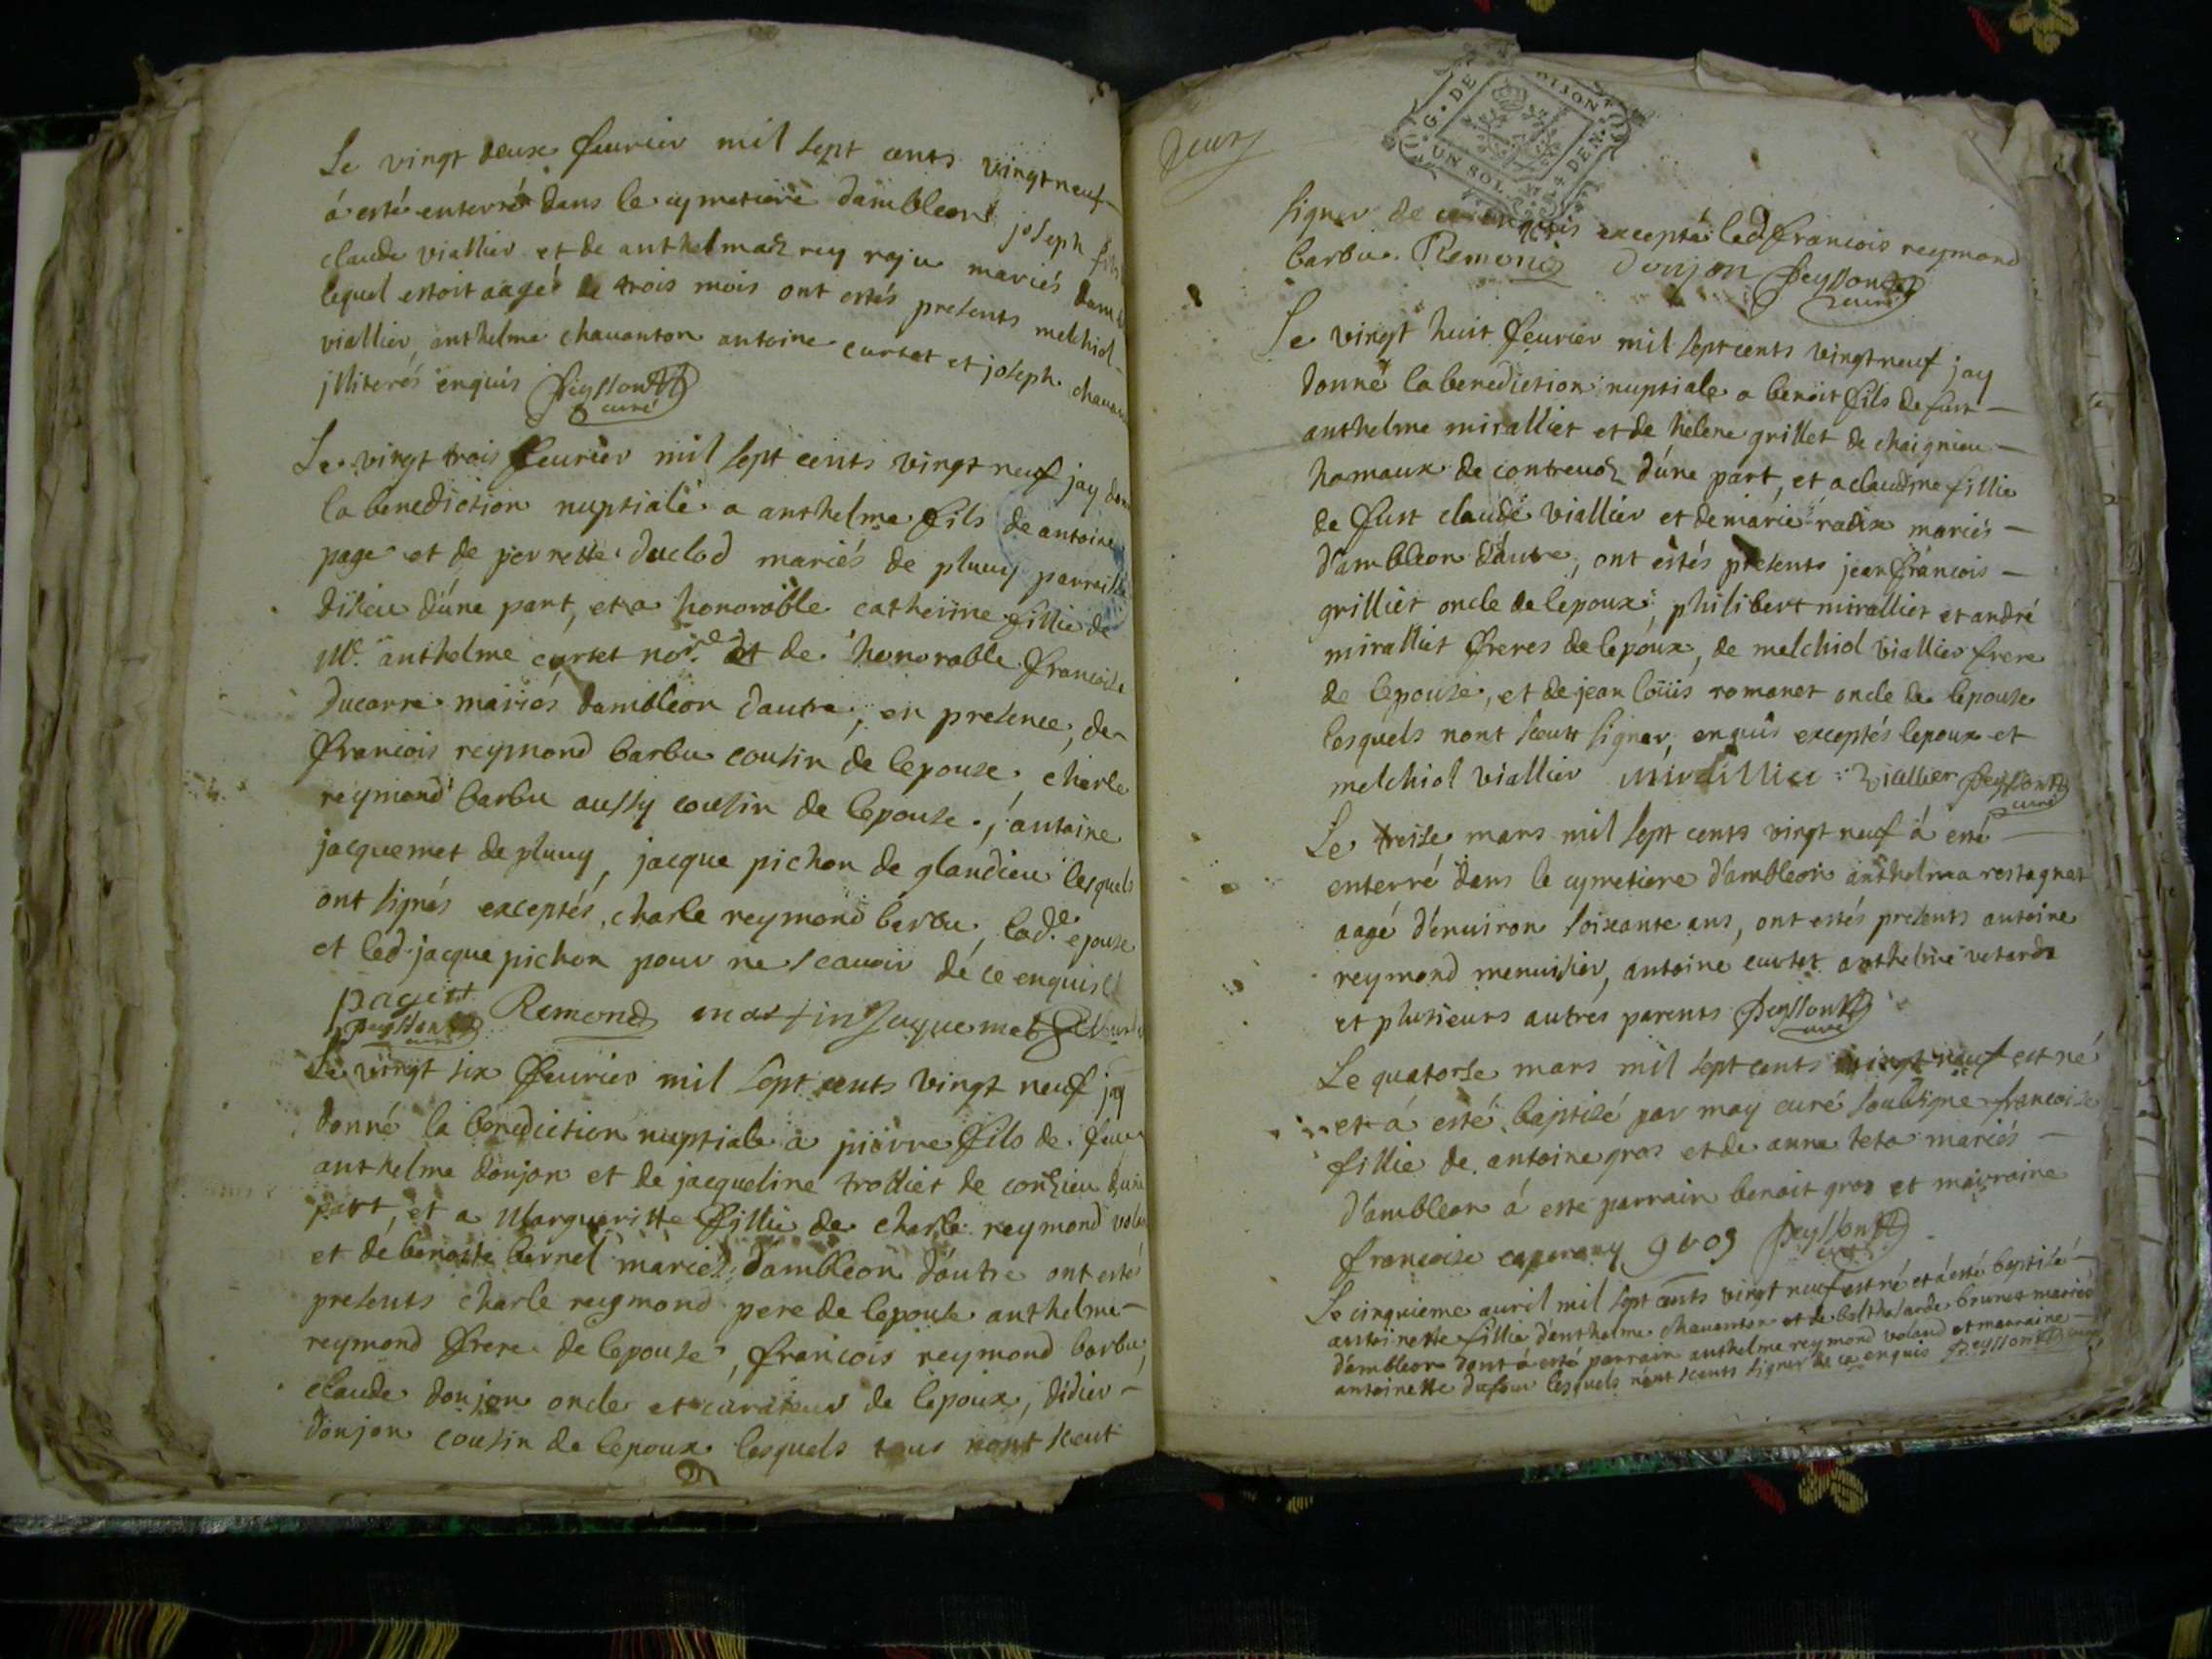 Le vingt deux feurier mil sept cents vingt neuf
á esté enterré dans le cymetiere dambleon joseph fils
claude viallier et de anthelmaz rey raju mariés damb
lequel estoit aagé de trois mois ont estés presents melchiol
viallier, anthelme chauanton antoine curtet et joseph chauan
jlliterés enquis Peysson
curé
Le vingt trois feurier mil sept cents vingt neuf jay don
la benediction nuptiale a anthelme fils de antoine
page et de perrette duclod mariés de pluuy parroisse
disieu d'une part, et a honorable catherine fillie de
Me. anthelme curtet nore. et de honorable francoise
ducarre mariés dambleon dautre, en presence, de
francois reymond barbu cousin de lepouse, charle
reymond barbu aussy cousin de lepouse, antoine
jacquemet de pluuy, jacque pichon de glandieu lesquels
ont signés exceptés, charle reymond barbu, lade. epouse
et led. jacque pichon pour ne scauoir de ce enquis
pagett Remond martin Jaquemet
Peysson curé
Le vingt six feurier mil sept cents vingt neuf jay
donné la benediction nuptiale a pierre fils de feu
anthelme donjon et de jacqueline trolliet de conzieu dune
part, et a Margueritte fillie de charle reymond volan
et de benoite bernel mariez d'ambleon d'autre ont estés
presents charle reymond pere de lepouse anthelme
reymond frere de lepouse, francois reymond barbu,
claude donjon oncle et curateur de lepoux, didier
donjon cousin de lepoux lesquels tous nont sceut
G. DE DIJON
UN SOL DEN.
signer de ce enquis excepté led francois reymond
barbu. Remond donjon Peysson
curé
Le vingt huit feurier mil sept cents vingt neuf jay
donné la benediction nuptiale a benoit fils de fust
anthelme miralliet et de helene grillet de chaignieu
hamaux de contreuoz d'une part, et a claudine fillie
de fust claude viallier et de marie radix mariés
d'ambleon d'autre, ont estés presents jean francois
grilliet oncle de lepoux, philibert miralliet et andré
miralliet freres de lepoux, de melchiol viallier frere
de lepouse, et de jean loüis romanet oncle de lepouse
lesquels nont sceutt signer, enquis exceptés lepoux et
melchiol viallier Miralliet viallier Peysson
curé
Le treise mars mil sept cents vingt neuf á esté
enterré dans le cymetiere d'ambleon anthelma rostagnat
aagé d'enuiron soixante ans, ont estés presents antoine
reymond menuisier, antoine curtet anthelme vetard
et plusieurs autres parents Peysson
curé
Le quatorse mars mil sept cents vingt neuf est né
et á esté baptisé par moy curé soubsigne francoise
fillie de antoine gros et de anne teta mariés
d'ambleon á este parrain benoit gros et mairaine
francoise caperony gros Peysson
curé
Le cinquieme auril mil sept cents vingt neuf est né et á esté baptisé
antoinette fillie d'anthelme chauanton et de balthasarde brunet mariés
d'ambleon dont á esté parrain anthelme reymond voland et marraine
antoinette dufour lesquels nont sceuts signer de ce enquis Peysson curé